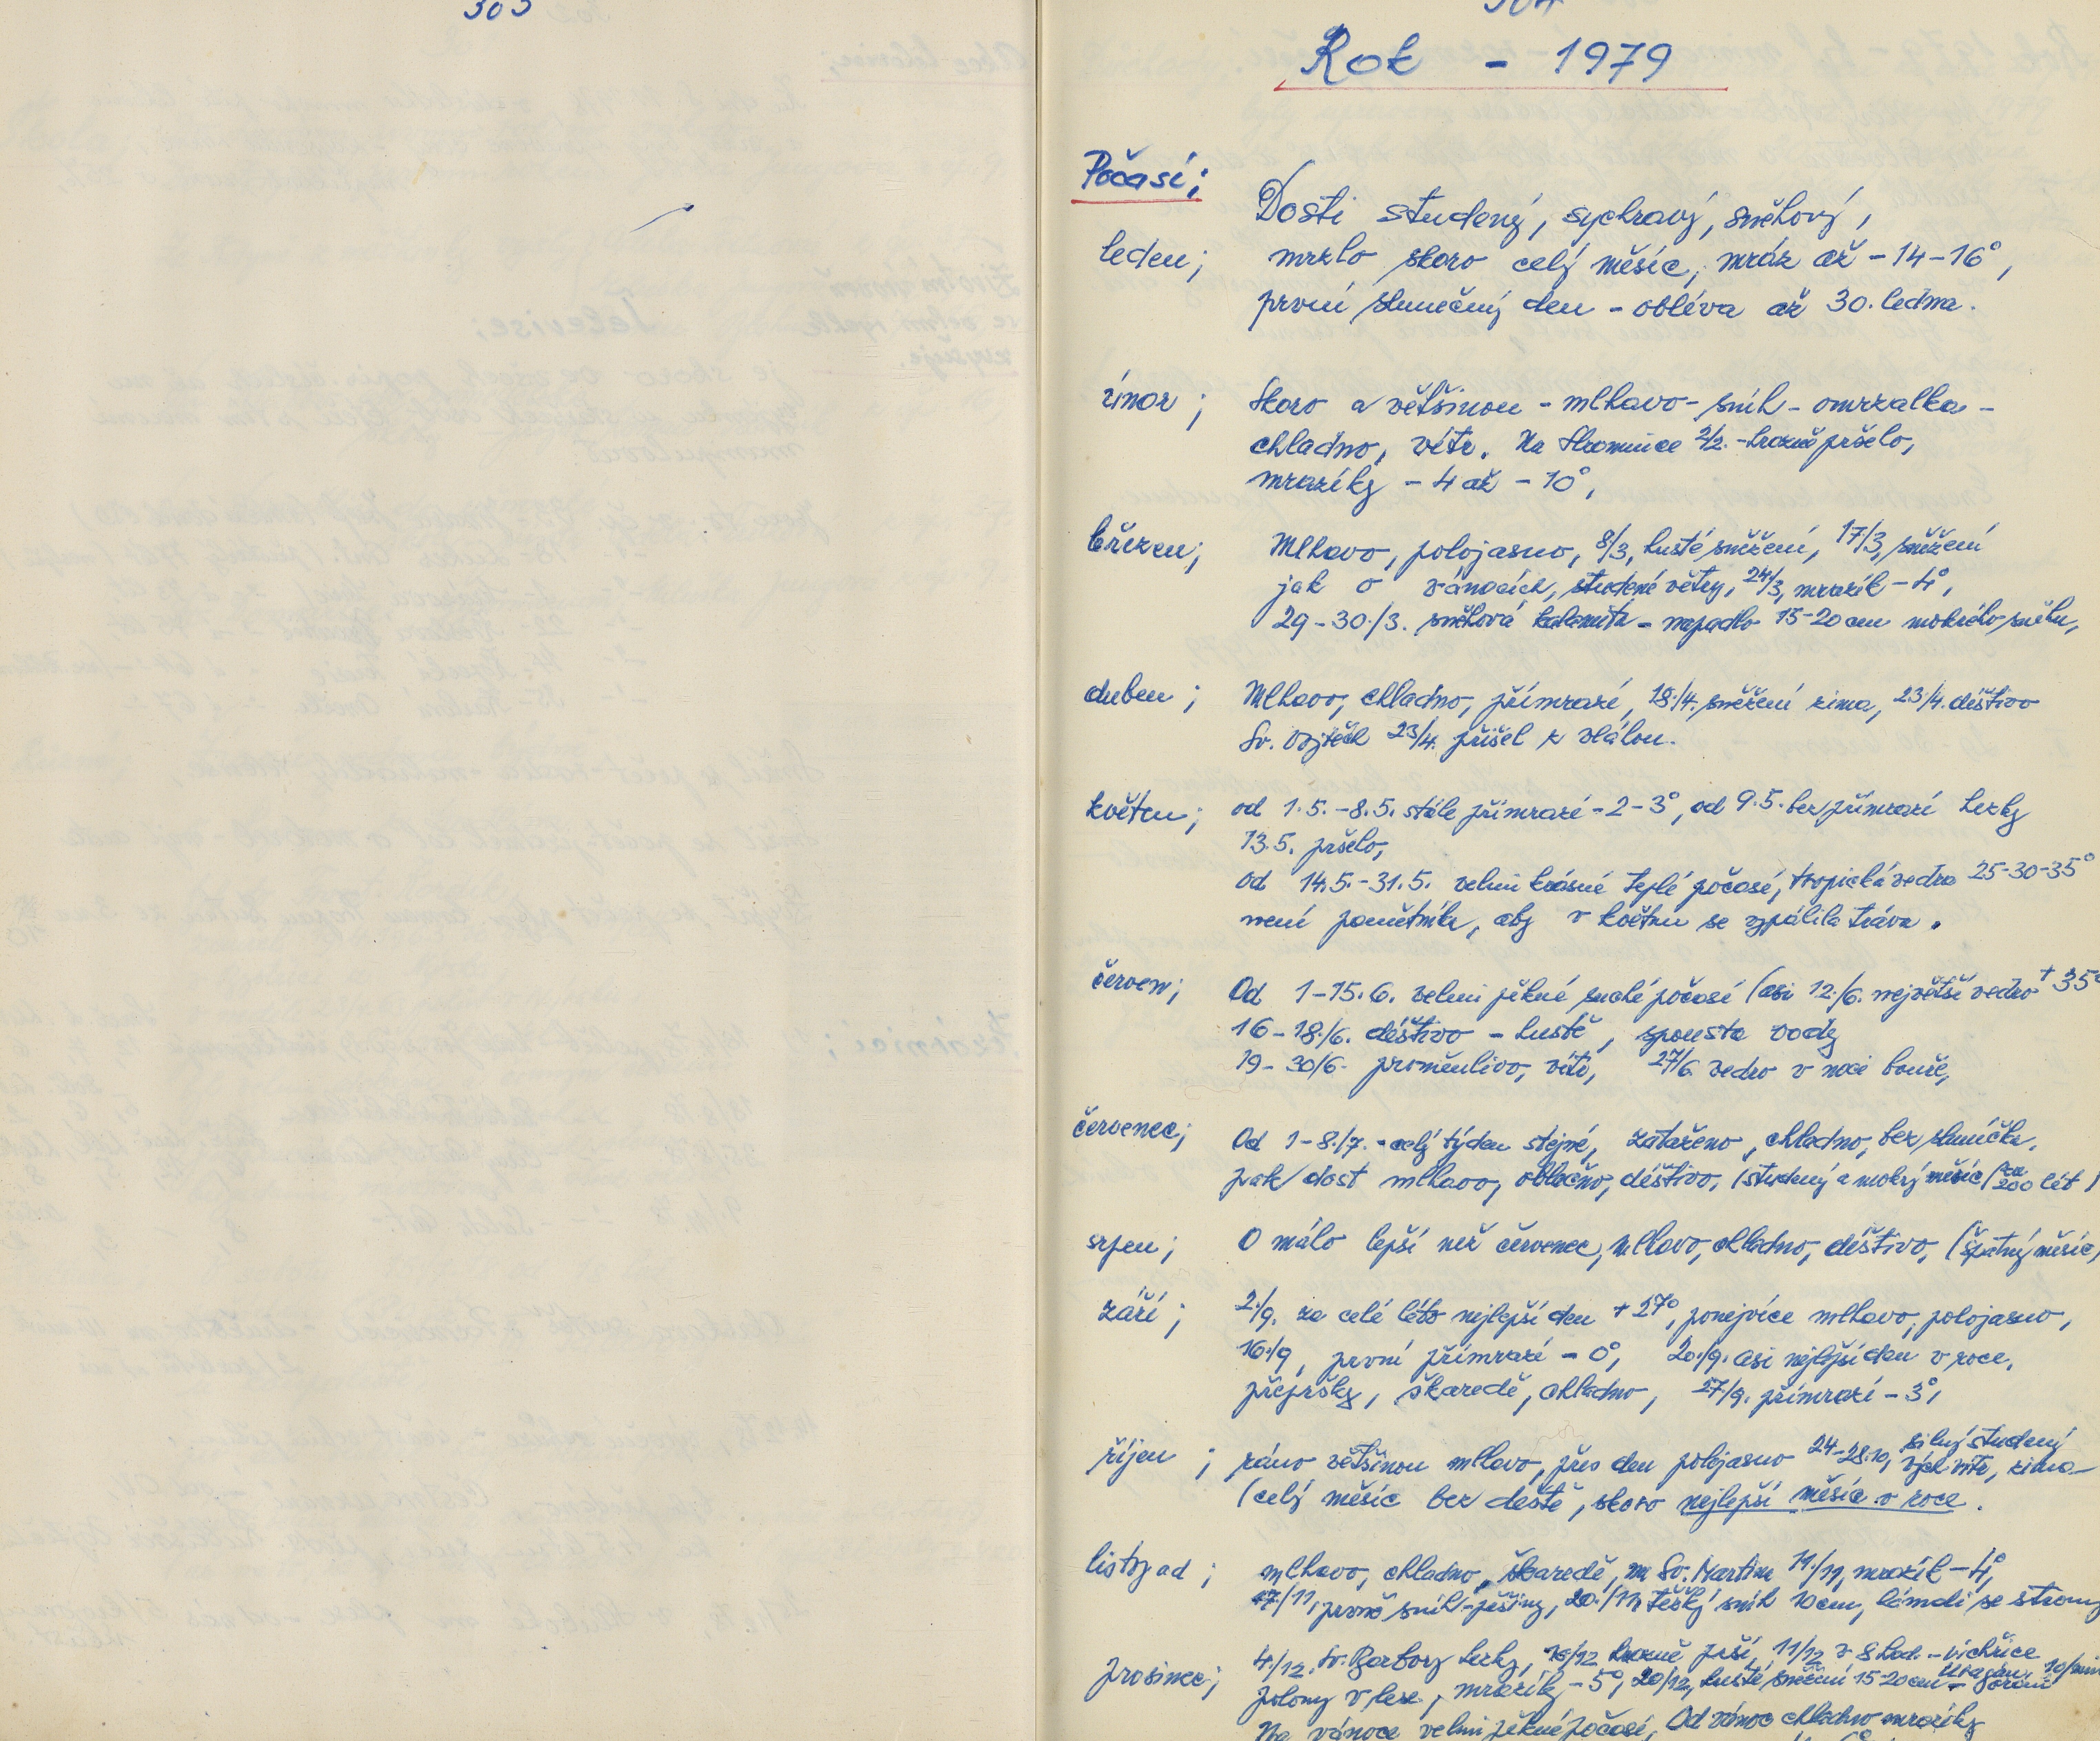 303
304
Rok - 1979
Počasí;
Dosti studený, sychravý, sněhový,
leden; mrzlo skoro celý měsíc, mráz až -14-16°,
první slunečný den - obleva až 30. ledna.
únor; Skoro a většinou - mlhavo - sníh - omrzalka -
chladno, vítr. Na Hromnice 2/2. - hrozně pršelo,
mrazíky - 4 až - 10°,
březen; Mlhavo, polojasno, 8/3, husté sněžení, 17/3, sněžení
jak o vánocích, studené větry, 24/3, mrazík - 4°,
29-30./3. sněhová kalamita - napadlo 15-20 cm mokrého sněhu,
duben; Mlhavo, chladno, přímrazí, 18./4. sněžení zima, 23/4. déštivo
Sv. Vojtěch 23/4. přišel z
květen; od 1.5.-8.5. stále přímrazí -2-3°, od 9.5. bez přímrazí hezky
13.5. pršelo,
od 14.5.-31.5. velmi krásné teplé počasí, tropická vedra 25-30-35°
není pamětníka, aby v květnu se vypálila tráva.
červen; Od 1-15.6. velmi pěkné suché počasí (asi 12./6. největší vedro +35°
16-18./6. déštivo - hustě, spousta vody
19-30/6. proměnlivo, vítr, 27/6. vedro v noci bouře,
červenec; Od 1-8./7. - celý týden stejné, zataženo, chladno, bez sluníčka,
pak dost mlhavo, oblačno, déštivo, (studený a mokrý měsíc (za 200 lét)
srpen; O málo lepší než červenec, mlhavo, chladno, déštivo, (špatný měsíc)
září; 2./9. za celé léto nejlepší den +27°, ponejvíce mlhavo, polojasno,
16./9, první přímrazí - 0°, 20./9. asi nejlepší den v roce,
přepršky, škaredě, chladno, 27/9. přímrazí - 3°,
říjen; ráno většinou mlhavo, přes den polojasno 24-28.10, silný studený vých vítr, zima
(celý měsíc bez deště, skoro nejlepší měsíc v roce.
listopad; mlhavo, chladno, škaredě, na Sv. Martina 11./11, mrazík - 4°,
17./11, první sníh - pršiny, 20./11 těžký sníh 10 cm, lámali se stromy
prosinec; 4./12. Sv. Barbory hezky, 10/12 hrozně prší, 11/12 v 8 hod. - vichřice
polomy v lese, mrazíky - 5°, 20/12, husté sněžení 15-20 cm
Na vánoce velmi pěkné počasí, Od vánoc chladno mrazíky